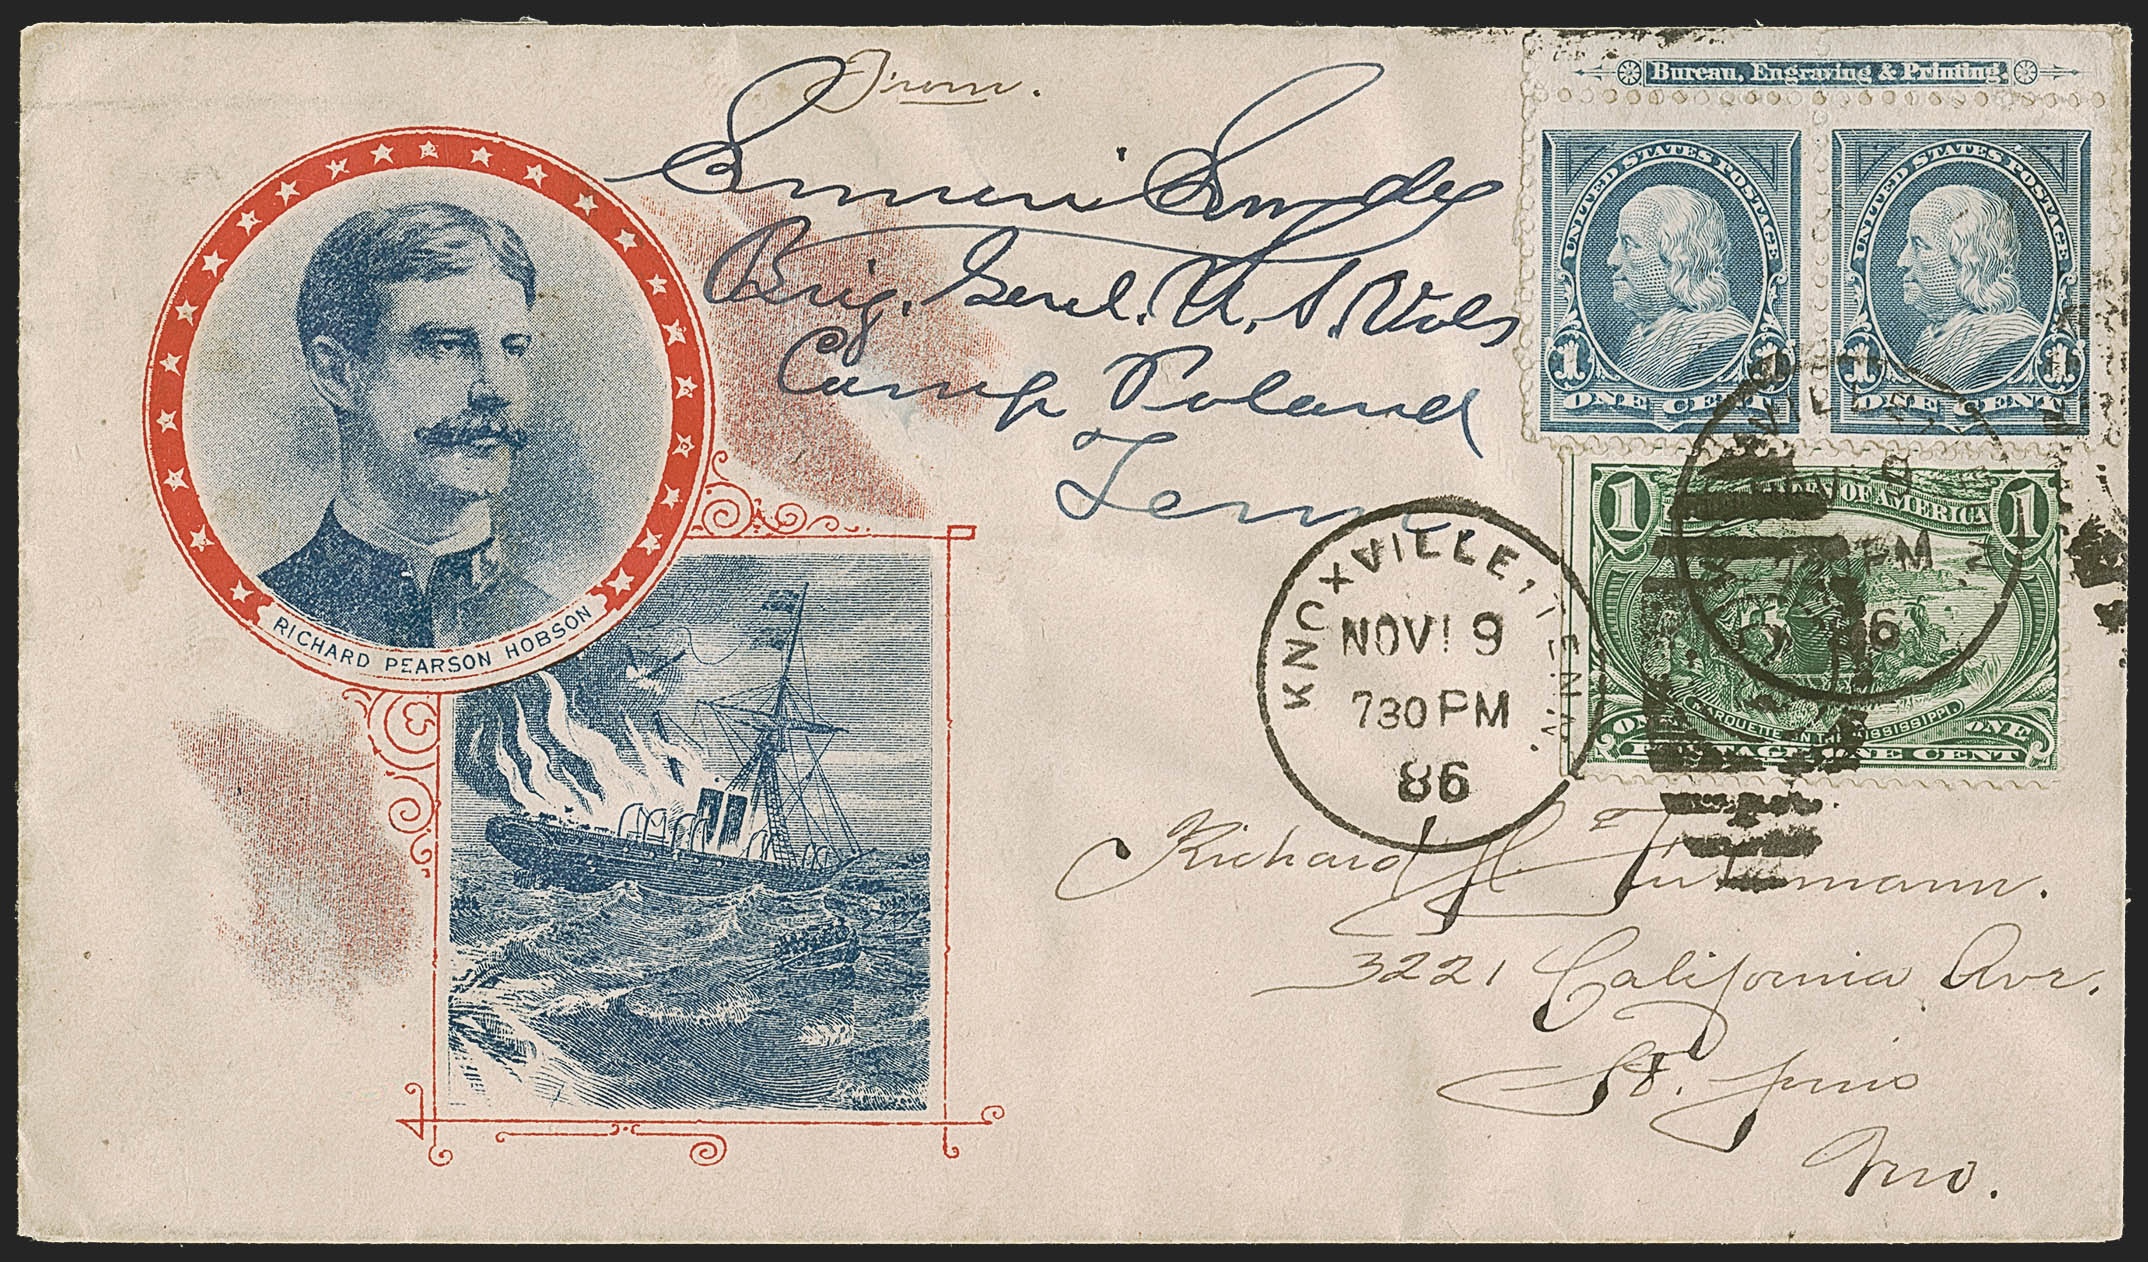 From.
Simon Snyder
Brig. Genl. U.S. Vols
Camp Poland
Tenn
Bureau, Engraving & Printing.
UNITED STATES POSTAGE
1 1
ONE CENT
UNITED STATES POSTAGE
1 1
ONE CENT
1 OF AMERICA 1
MARQUETTE ON THE MISSISSIPPI.
ONE ONE
POSTAGE ONE CENT
VILLE
PM
86
KNOXVILLE, TENN.
NOV 9
730 PM
86
1
RICHARD PEARSON HOBSON
Richard H.
3221 California Ave.
St. Louis
Mo.